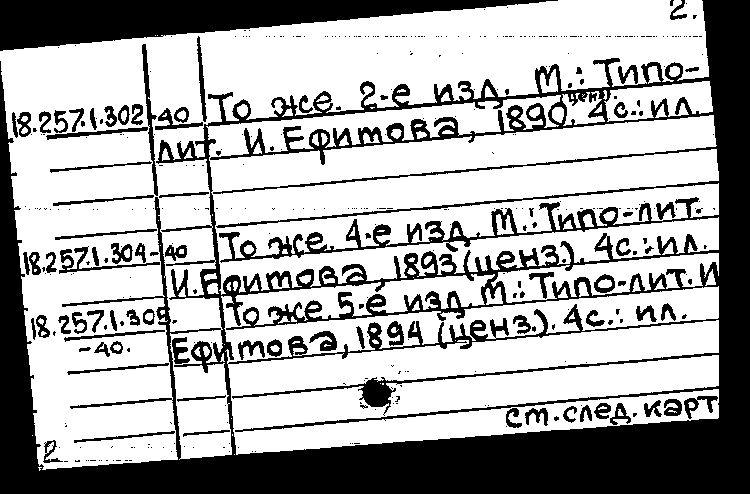 2.
18.257.1.302-40 То же. 2-е изд. М.: Типо-
лит. И. Ефитова, 1890. (ценз). 4с.: ил.
18.257.1.304-40 То же. 4-е изд. М.: Типо-лит.
И. Ефитова, 1893 (ценз.). 4с.: ил.
18.257.1.305. То же. 5-е изд. М.: Типо-лит. И
-40. Ефитова, 1894 (ценз.). 4с.: ил.
см. след. карт
2